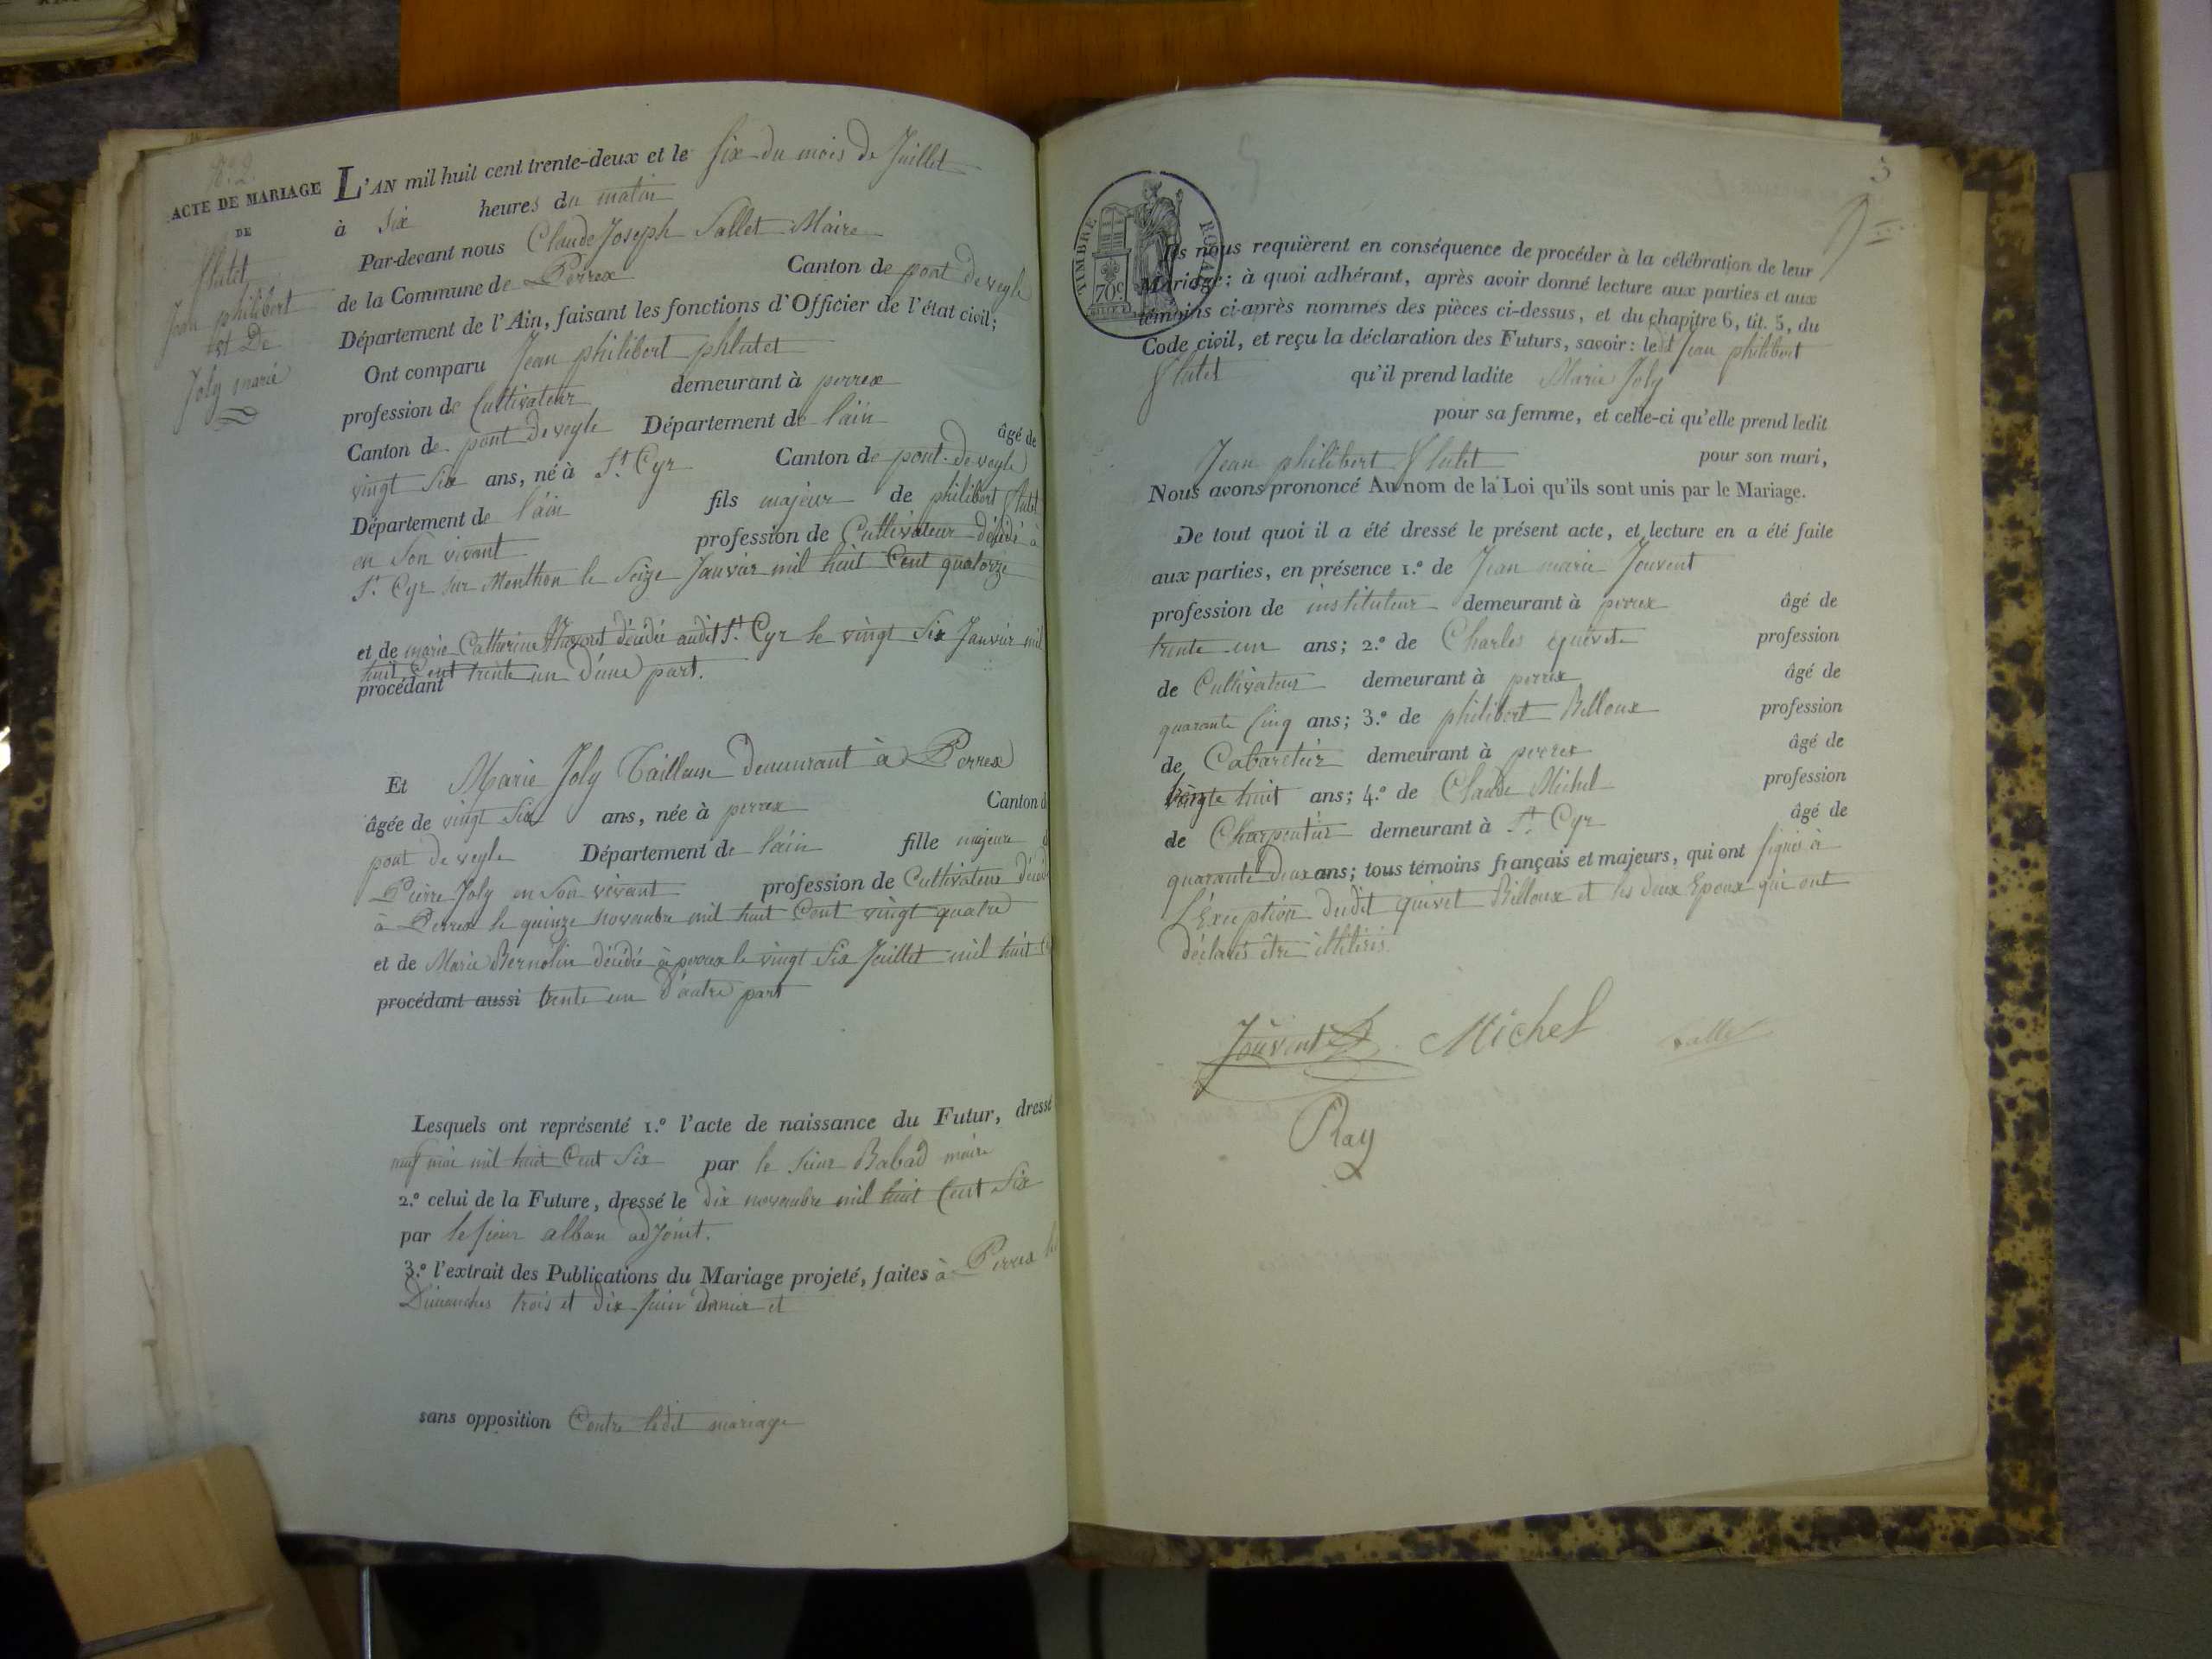 N.º 2.
ACTE DE MARIAGE
DE
Flutet
Jean philibert
et De
Joly marie
L'AN mil huit cent trente-deux et le six du mois de Juillet
à Six heures du matin
Par-devant nous Claude Joseph Sallet Maire
de la Commune de Perrex Canton de pont de veyle
Département de l'Ain, faisant les fonctions d'Officier de l'état civil;
Ont comparu Jean philibert phlutet
profession de Cultivateur demeurant à perrex
Canton de pont de veyle Département de l'ain âgé de
vingt Six ans, né à St. Cyr Canton de pont de veyle
Département de l'ain fils majeur de philibert flutet
en Son vivant profession de Cultivateur décédé à
St. Cyr sur Menthon le Seize Janvier mil huit Cent quatorze
et de marie Catherine décédée audit St. Cyr le vingt Six Janvier mil
huit Cent trente un d'une part.
procédant
Et Marie Joly Tailleuse demeurant à Perrex
âgée de vingt Six ans, née à perrex Canton d
pont de veyle Département de l'ain fille majeure d
Pierre Joly en Son vivant profession de Cultivateur décédé
à Perrex le quinze novembre mil huit Cent vingt quatre
et de Marie Bernolin décédée à perrex le vingt Six Juillet mil huit
procédant aussi trente un d'autre part
Lesquels ont représenté 1.º l'acte de naissance du Futur, dressé
neuf mai mil huit Cent Six par le Sieur Babad maire
2.º celui de la Future, dressé le dix novembre mil huit Cent Six
par le Sieur alban adjoint.
3.º l'extrait des Publications du Mariage projeté, faites à Perrex les
Dimanches trois et dix Juin dernier et
sans opposition Contre ledit mariage
3
TIMBRE ROYAL
70c
Ils nous requièrent en conséquence de procéder à la célébration de leur
Mariage; à quoi adhérant, après avoir donné lecture aux parties et aux
témoins ci-après nommés des pièces ci-dessus, et du chapitre 6, tit. 5, du
Code civil, et reçu la déclaration des Futurs, savoir: ledit Jean philibert
flutet qu'il prend ladite Marie Joly
pour sa femme, et celle-ci qu'elle prend ledit
Jean philibert flutet pour son mari,
Nous avons prononcé Au nom de la Loi qu'ils sont unis par le Mariage.
De tout quoi il a été dressé le présent acte, et lecture en a été faite
aux parties, en présence 1.º de Jean marie Jouvent
profession de instituteur demeurant à perrex âgé de
trente un ans; 2.º de Charles profession
de Cultivateur demeurant à perrex âgé de
quarante Cinq ans; 3.º de philibert Billoux profession
de Cabaretier demeurant à perrex âgé de
huit ans; 4.º de Claude Michel profession
de Charpentier demeurant à St. Cyr âgé de
quarante deux ans; tous témoins français et majeurs, qui ont signés à
L'Exception dudit quivet Billoux et les deux Epoux qui ont
déclarés être illitérés.
Jouvent Michel Sallet
Ray